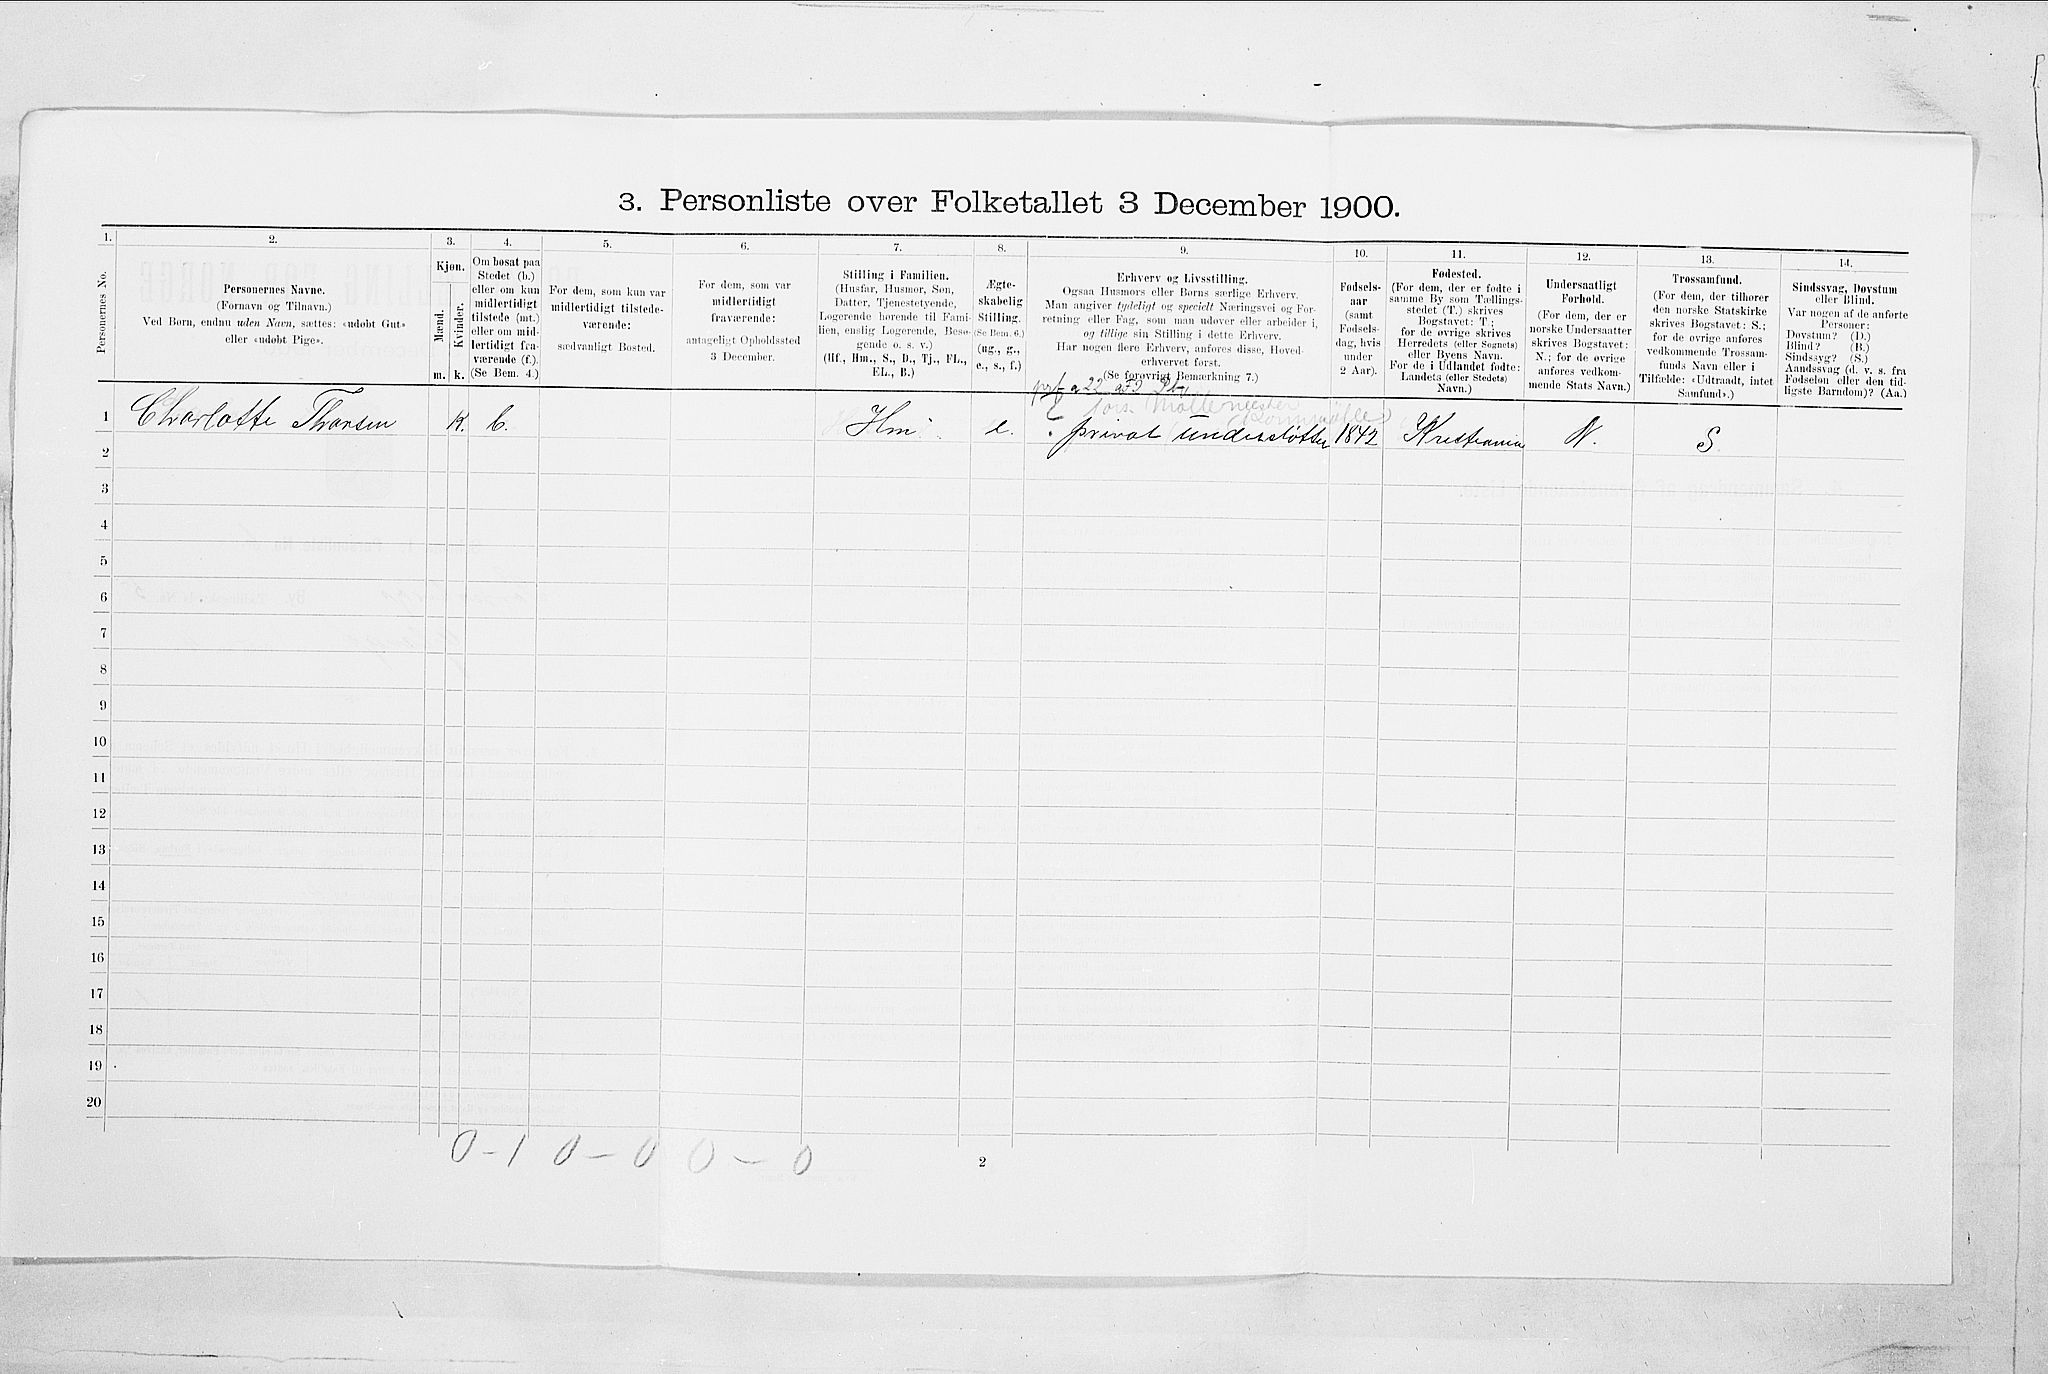 3. Personliste over Folketallet 3 December 1900.
1. 2. 3. 4. 5. 6. 7. 8. 9. 10. 11. 12. 13. 14.
Personernes No.
Personernes Navne.
(Fornavn og Tilnavn.)
Ved Børn, endnu uden Navn, sættes: «udøbt Gut»
eller «udøbt Pige».
Kjøn.
Mænd.
Kvinder.
m. k.
Om bosat paa
Stedet (b.)
eller om kun
midlertidigt
tilstede (mt.)
eller om mid-
lertidigt fra-
værende (f.).
(Se Bem. 4.)
For dem, som kun var
midlertidigt tilstede-
værende:
sædvanligt Bosted.
For dem, som var
midlertidigt
fraværende:
antageligt Opholdssted
3 December.
Stilling i Familien.
(Husfar, Husmor, Søn,
Datter, Tjenestetyende,
Logerende hørende til Fami-
lien, enslig Logerende, Besø-
gende o. s. v.)
(Hf., Hm., S., D., Tj., FL.,
EL., B.)
Ægte-
skabelig
Stilling.
(Se Bem. 6.)
(ug., g.,
e., s., f.)
Erhverv og Livsstilling.
Ogsaa Husmors eller Børns særlige Erhverv.
Man angiver tydeligt og specielt Næringsvei og For-
retning eller Fag, som man udøver eller arbeider i,
og tillige sin Stilling i dette Erhverv.
Har nogen flere Erhverv, anføres disse, Hoved-
erhvervet først.
(Se forøvrigt Bemærkning 7.)
Fødsels-
aar
(samt
Fødsels-
dag, hvis
under
2 Aar).
Fødested.
(For dem, der er fødte i
samme By som Tællings-
stedet (T.) skrives
Bogstavet: T.;
for de øvrige skrives
Herredets (eller Sognets)
eller Byens Navn.
For de i Udlandet fødte:
Landets (eller Stedets)
Navn.)
Undersaatligt
Forhold.
(For dem, der er
norske Undersaatter
skrives Bogstavet:
N.; for de øvrige
anføres vedkom-
mende Stats Navn.)
Trossamfund.
(For dem, der tilhører
den norske Statskirke
skrives Bogstavet: S.;
for de øvrige anføres
vedkommende Trossam-
funds Navn eller i
Tilfælde: «Udtraadt, intet
Samfund».)
Sindssvag, Døvstum
eller Blind.
Var nogen af de anførte
Personer:
Døvstum? (D.)
Blind? (B.)
Sindssyg? (S.)
Aandssvag (d. v. s. fra
Fødselen eller den tid-
ligste Barndom)? (Aa.)
1 Charlotte Thorsen K. b. Hm e. privat understøttes 1842 Kristiania N. S.
2
3
4
5
6
7
8
9
10
11
12
13
14
15
16
17
18
19
20
0 - 1 0 - 0 0 - 0
2